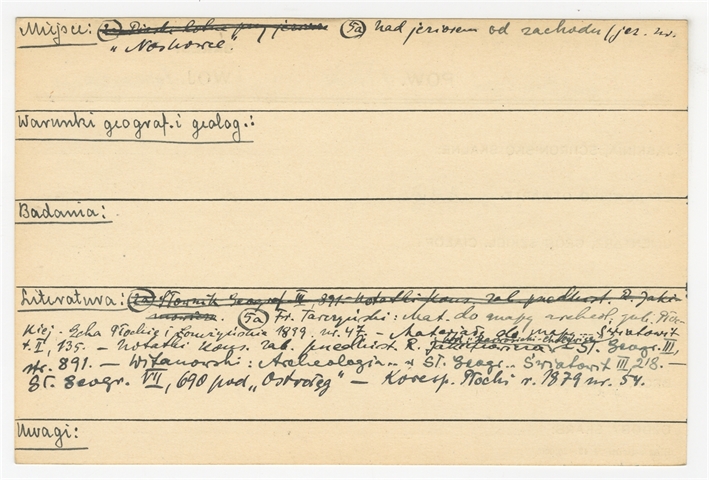 Miejsce: 5a nad jeziorem od zachodu / jez. nr.
"Noskowce".
Warunki geograf. i geolog.:
Badania:
Literatura: 2a Słownik Geograf III, 891 - Notatki Kons. zab. przedhist. R. Jaki-
mowicza. 5a Fr. Tarczyński: Mat. do mapy archeol. gub. Płoc-
kiej. Echa Płockie i Łomżyńskie 1899. nr. 47. — Materiały do mapy .. Światowit
t. II, 135. — Notatki Kons. zab. przedhist. R. Jakimowicza Sł. Geogr. III,
str. 891. — Wżdanowski: Archeologia .. w Sł. Geogr.. Światowit III, 218. —
Sł. Geogr. VII, 690 pod "Ostrołęg" — Koresp. Płocki r. 1879 nr. 54.
Uwagi: